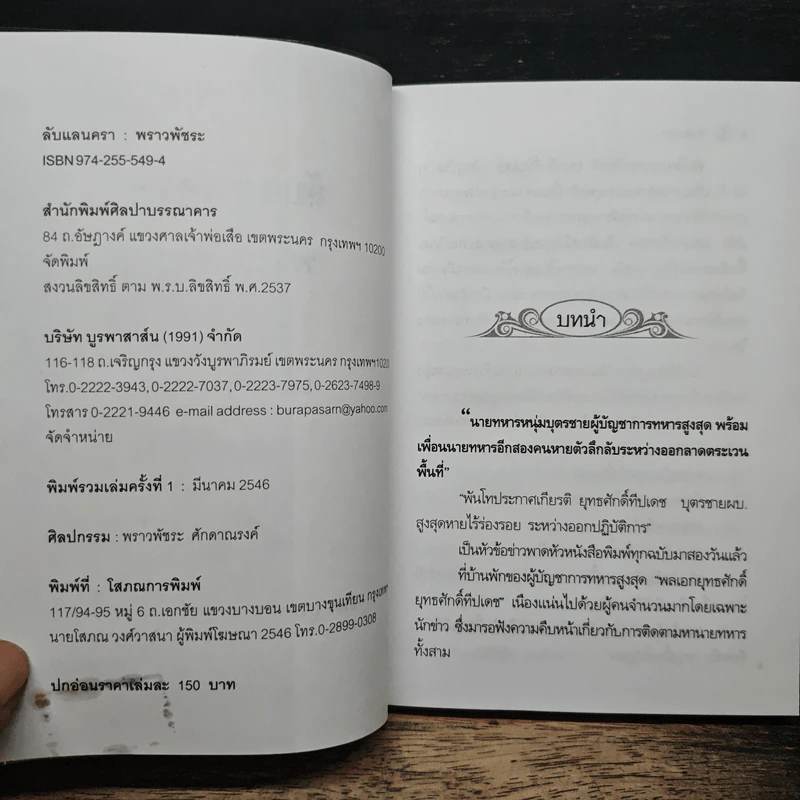 ลับแลนครา : พราวพัชระ
ISBN 974-255-549-4
สำนักพิมพ์ศิลปาบรรณาคาร
84 ถ.อัษฎางค์ แขวงศาลเจ้าพ่อเสือ เขตพระนคร กรุงเทพฯ 10200
จัดพิมพ์
สงวนลิขสิทธิ์ ตาม พ.ร.บ.ลิขสิทธิ์ พ.ศ.2537
บริษัท บูรพาสาส์น (1991) จำกัด
116-118 ถ.เจริญกรุง แขวงวังบูรพาภิรมย์ เขตพระนคร กรุงเทพฯ10200
โทร.0-2222-3943, 0-2222-7037, 0-2223-7975, 0-2623-7498-9
โทรสาร 0-2221-9446 e-mail address : burapasarn@yahoo.com
จัดจำหน่าย
พิมพ์รวมเล่มครั้งที่ 1 : มีนาคม 2546
ศิลปกรรม : พราวพัชระ ศักดาณรงค์
พิมพ์ที่ : โสภณการพิมพ์
117/94-95 หมู่ 6 ถ.เอกชัย แขวงบางบอน เขตบางขุนเทียน กรุงเทพฯ
นายโสภณ วงศ์วาสนา ผู้พิมพ์โฆษณา 2546 โทร.0-2899-0308
ปกอ่อนราคาเล่มละ 150 บาท
บทนำ
“นายทหารหนุ่มบุตรชายผู้บัญชาการทหารสูงสุด พร้อม
เพื่อนนายทหารอีกสองคนหายตัวลึกลับระหว่างออกลาดตระเวน
พื้นที่”
“พันโทประกาศเกียรติ ยุทธศักดิ์ทีปเดช บุตรชายผบ.
สูงสุดหายไร้ร่องรอย ระหว่างออกปฏิบัติการ”
เป็นหัวข้อข่าวพาดหัวหนังสือพิมพ์ทุกฉบับมาสองวันแล้ว
ที่บ้านพักของผู้บัญชาการทหารสูงสุด “พลเอกยุทธศักดิ์
ยุทธศักดิ์ทีปเดช” เนืองแน่นไปด้วยผู้คนจำนวนมากโดยเฉพาะ
นักข่าว ซึ่งมารอฟังความคืบหน้าเกี่ยวกับการติดตามหานายทหาร
ทั้งสาม